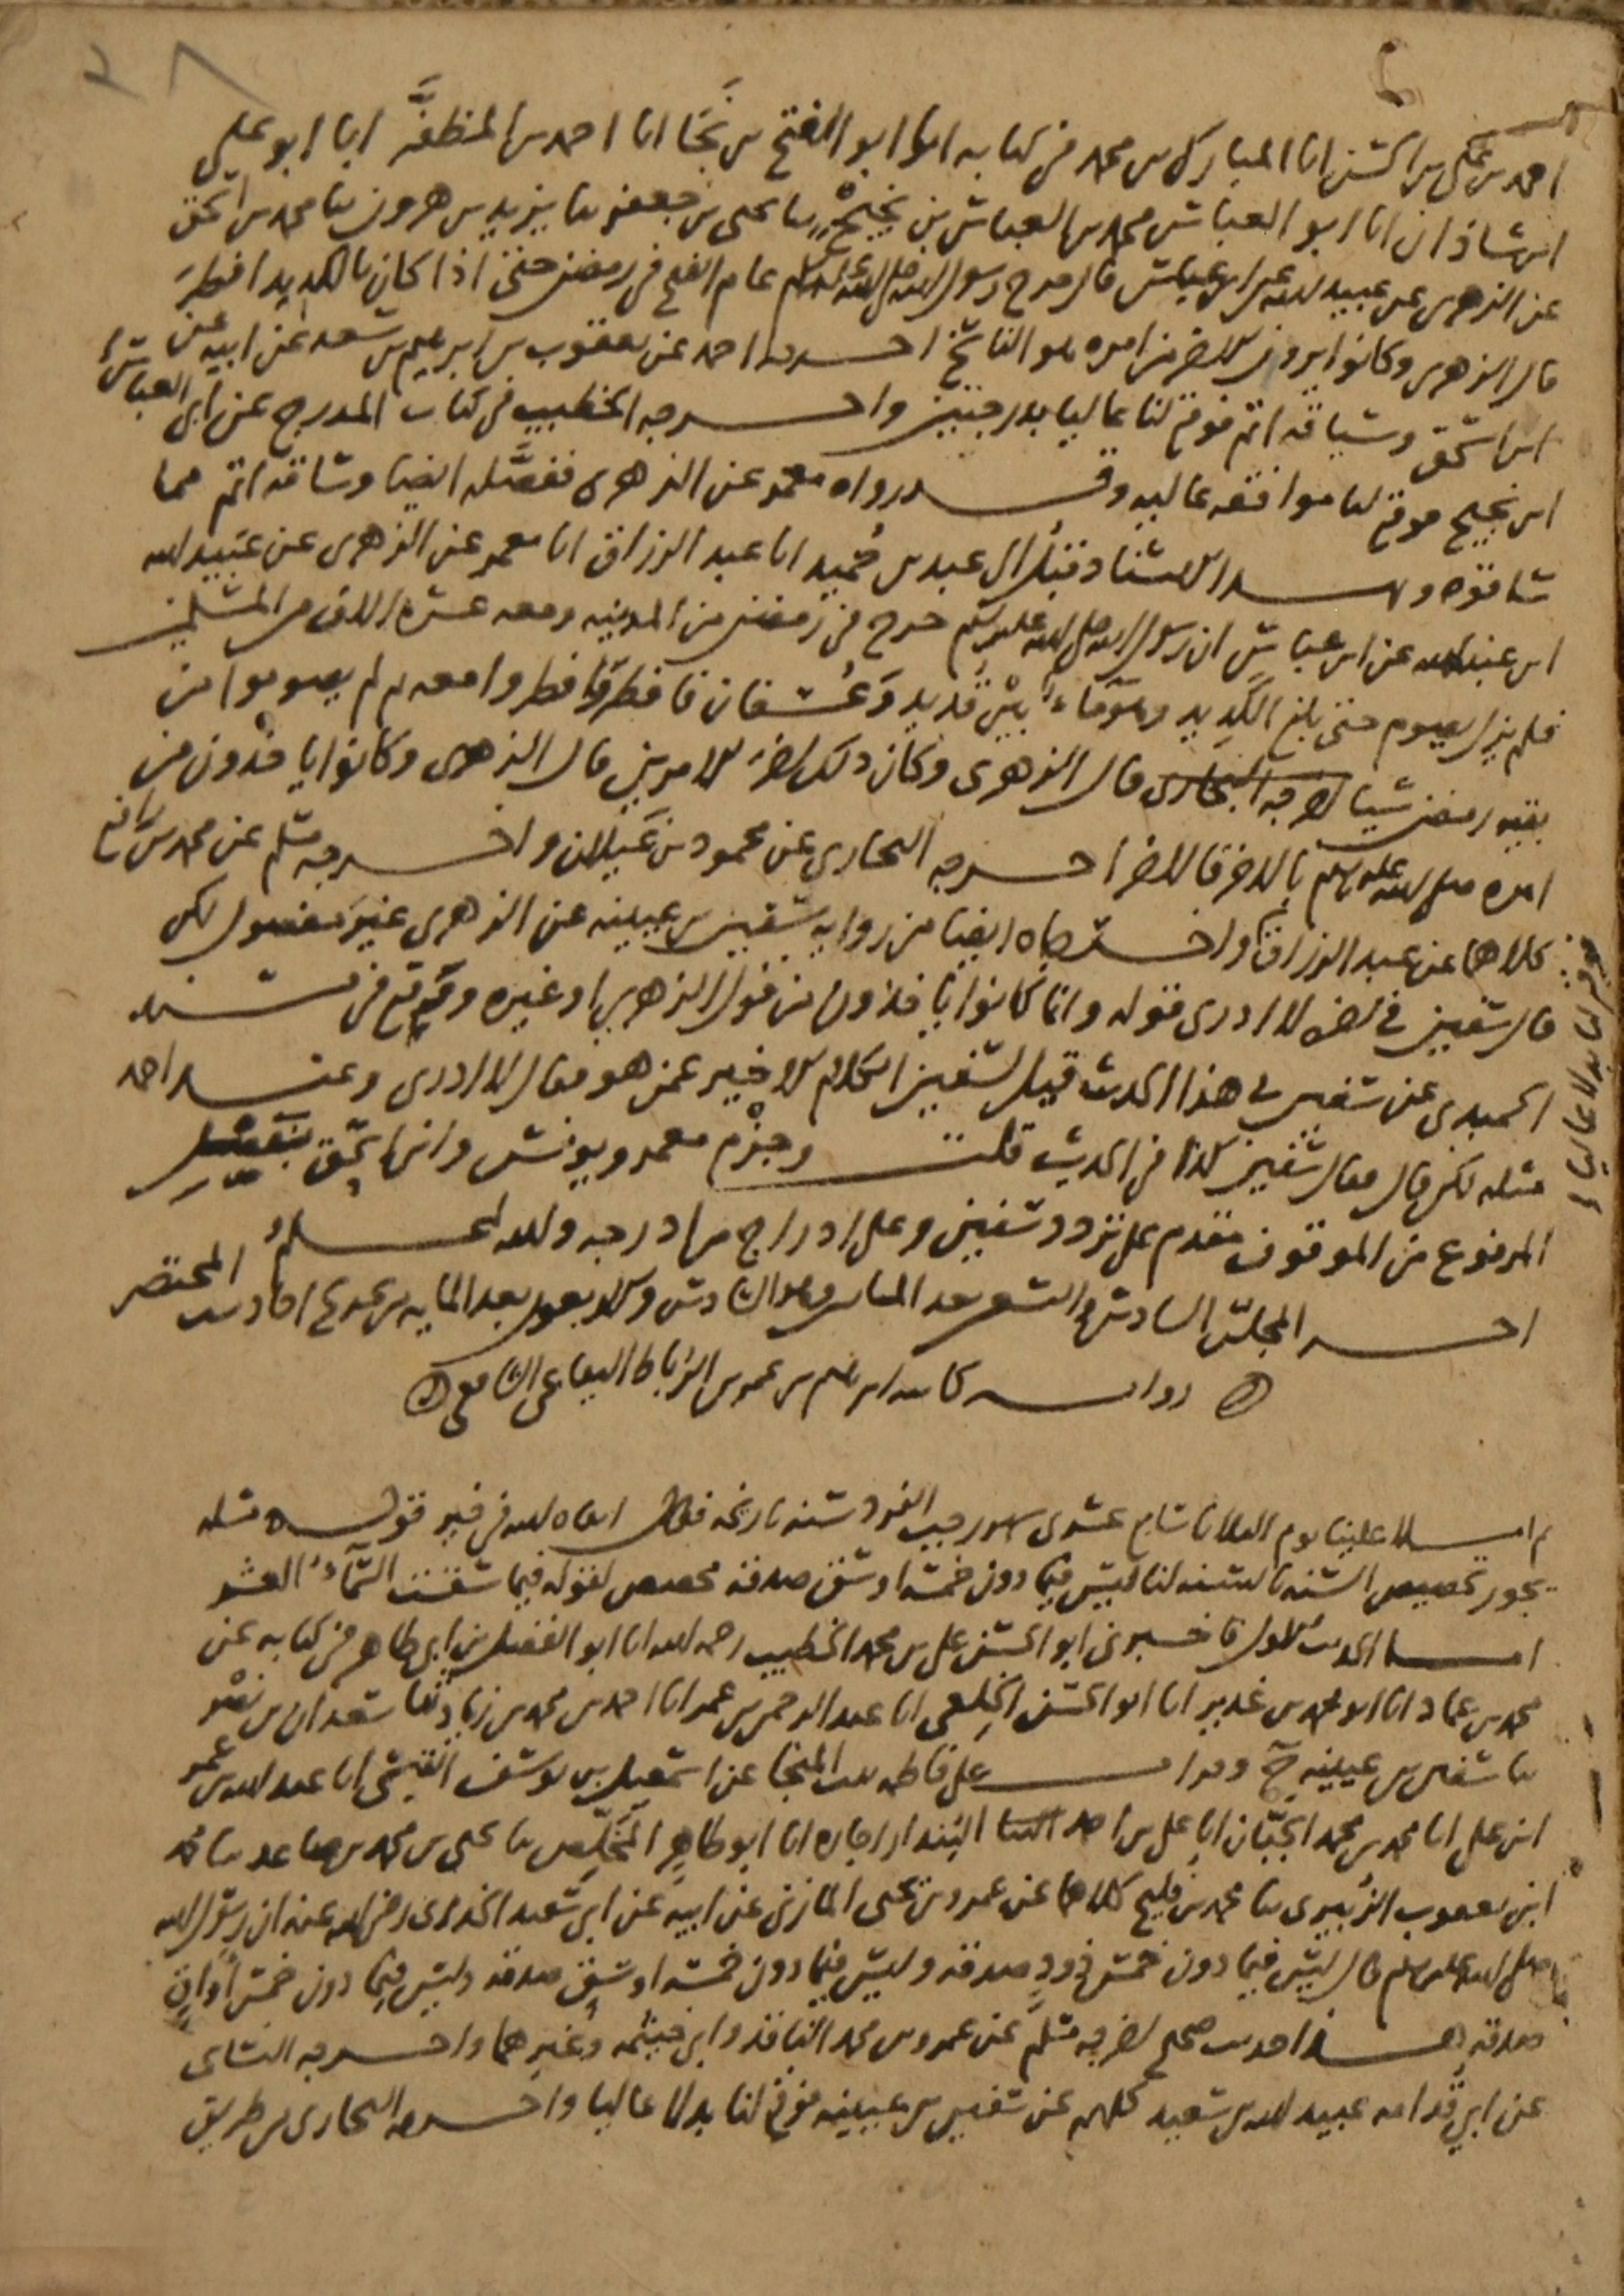 احمد بن علي بن الحسن انا المبارك بن محمد في كتابه انا ابو الفتح بن نجا انا احمد بن المظفر انا ابو علي
ابن شاذان انا ابو العباس محمد بن العباس بن نجيح ثنا يحيى بن جعفر ثنا يزيد بن هرون ثنا محمد بن اسحق
عن الزهري عن عبيد الله عن ابن عباس قال خرج رسول الله صلى الله عليه وسلم عام الفتح في رمضن حتى اذا كان بالكديد افطر
قال الزهري وكانوا يرون الاخر من امره هو الناسخ اخرجه احمد عن يعقوب بن ابرهيم بن سعد عن ابيه عن
ابن اسحق وسياقه اتم فوقع لنا عاليا بدرجتين واخرجه الخطيب في كتاب المدرج عن ابي العباس
ابن نجيح فوقع لنا موافقه عاليه وقد رواه معمر عن الزهري ففصله ايضا وساقه اتم مما
ساقوه وبهذا الاسناد قبل الى عبد بن حميد انا عبد الرزاق انا معمر عن الزهري عن عبيد الله
ابن عبد الله عن ابن عباس ان رسول الله صلى الله عليه وسلم خرج في رمضن من المدينه ومعه عشره الاف من المسلمين
فلم يزل يصوم حتى بلغ الكديد وهو ماء بين قديد وعسفان فافطر وافطروا معه ثم لم يصوموا من
بقيه رمضن شيا اخرجه البخاري قال الزهري وكان ذلك اخر الامرين قال الزهري وكانوا ياخذون من
امره صلى الله عليه وسلم بالاخر فالاخر اخرجه البخاري عن محمود بن غيلان واخرجه مسلم عن محمد بن رافع
كلاهما عن عبد الرزاق واخرجاه ايضا من روايه سفين بن عيينه عن الزهري غير مفصول لكن
قال سفين في اخره لا ادري قوله وانما كانوا ياخذون من قول الزهري او غيره ووقع في مسند
الحميدي عن سفين في هذا الحديث قيل لسفين الكلام الاخير عمن هو فقال لا ادري وعند احمد
مثله لكن قال فقال سفين كذا في الحديث قلت وجزم معمر ويونس وابن اسحق بتفصيل
المرفوع من الموقوف مقدم على تردد سفين وعلى ادراج من ادرجه والله اعلم
اخر المجلس السادس والتسعين بعد المايه وهو السادس والاربعون بعد المايه من تخريج احاديث المختصر
روايه كاتبه ابرهيم بن عمر بن الرباط البقاعي الشافعي
ثم املا علينا يوم الثلاثا سابع عشري شهر رجب الفرد سنه تاريخه فقال ابقاه الله في خير قوله مسله
يجوز تخصيص السنه بالسنه لنا ليس فيما دون خمسه اوسق صدقه مخصص لقوله فيما سقت السماء العشر
اما الحديث الاول فاخبرني ابو الحسن علي بن محمد الخطيب رحمه الله انا ابو الفضل بن ابي طاهر في كتابه عن
محمد بن عماد انا ابو محمد بن غدير انا ابو الحسن الخلعي انا عبد الرحمن بن عمر انا احمد بن محمد بن زياد ثنا سعدان بن نصر
ثنا سفين بن عيينه ح وقرات على فاطمه بنت المنجا عن اسمعيل بن يوسف القيسي انا عبد الله بن عمر
ابن علي انا محمد بن محمد الجبان انا علي بن احمد البندار اجازه انا ابو طاهر المخلص ثنا يحيى بن محمد بن صاعد ثنا محمد
ابن يعقوب الزبيري ثنا محمد بن فليح كلاهما عن عمرو بن يحيى المازني عن ابيه عن ابي سعيد الخدري رضي الله عنه ان رسول الله
صلى الله عليه وسلم قال ليس فيما دون خمس ذود صدقه وليس فيما دون خمسه اوسق صدقه وليس فيما دون خمس اواق
صدقه هذا حديث صحيح اخرجه مسلم عن عمرو بن محمد الناقد وابي خيثمه وغيرهما واخرجه النسائي
عن ابي قدامه عبيد الله بن سعيد كلهم عن سفين بن عيينه فوقع لنا بدلا عاليا واخرجه البخاري من طريق
فوقع لنا بدلا عاليا